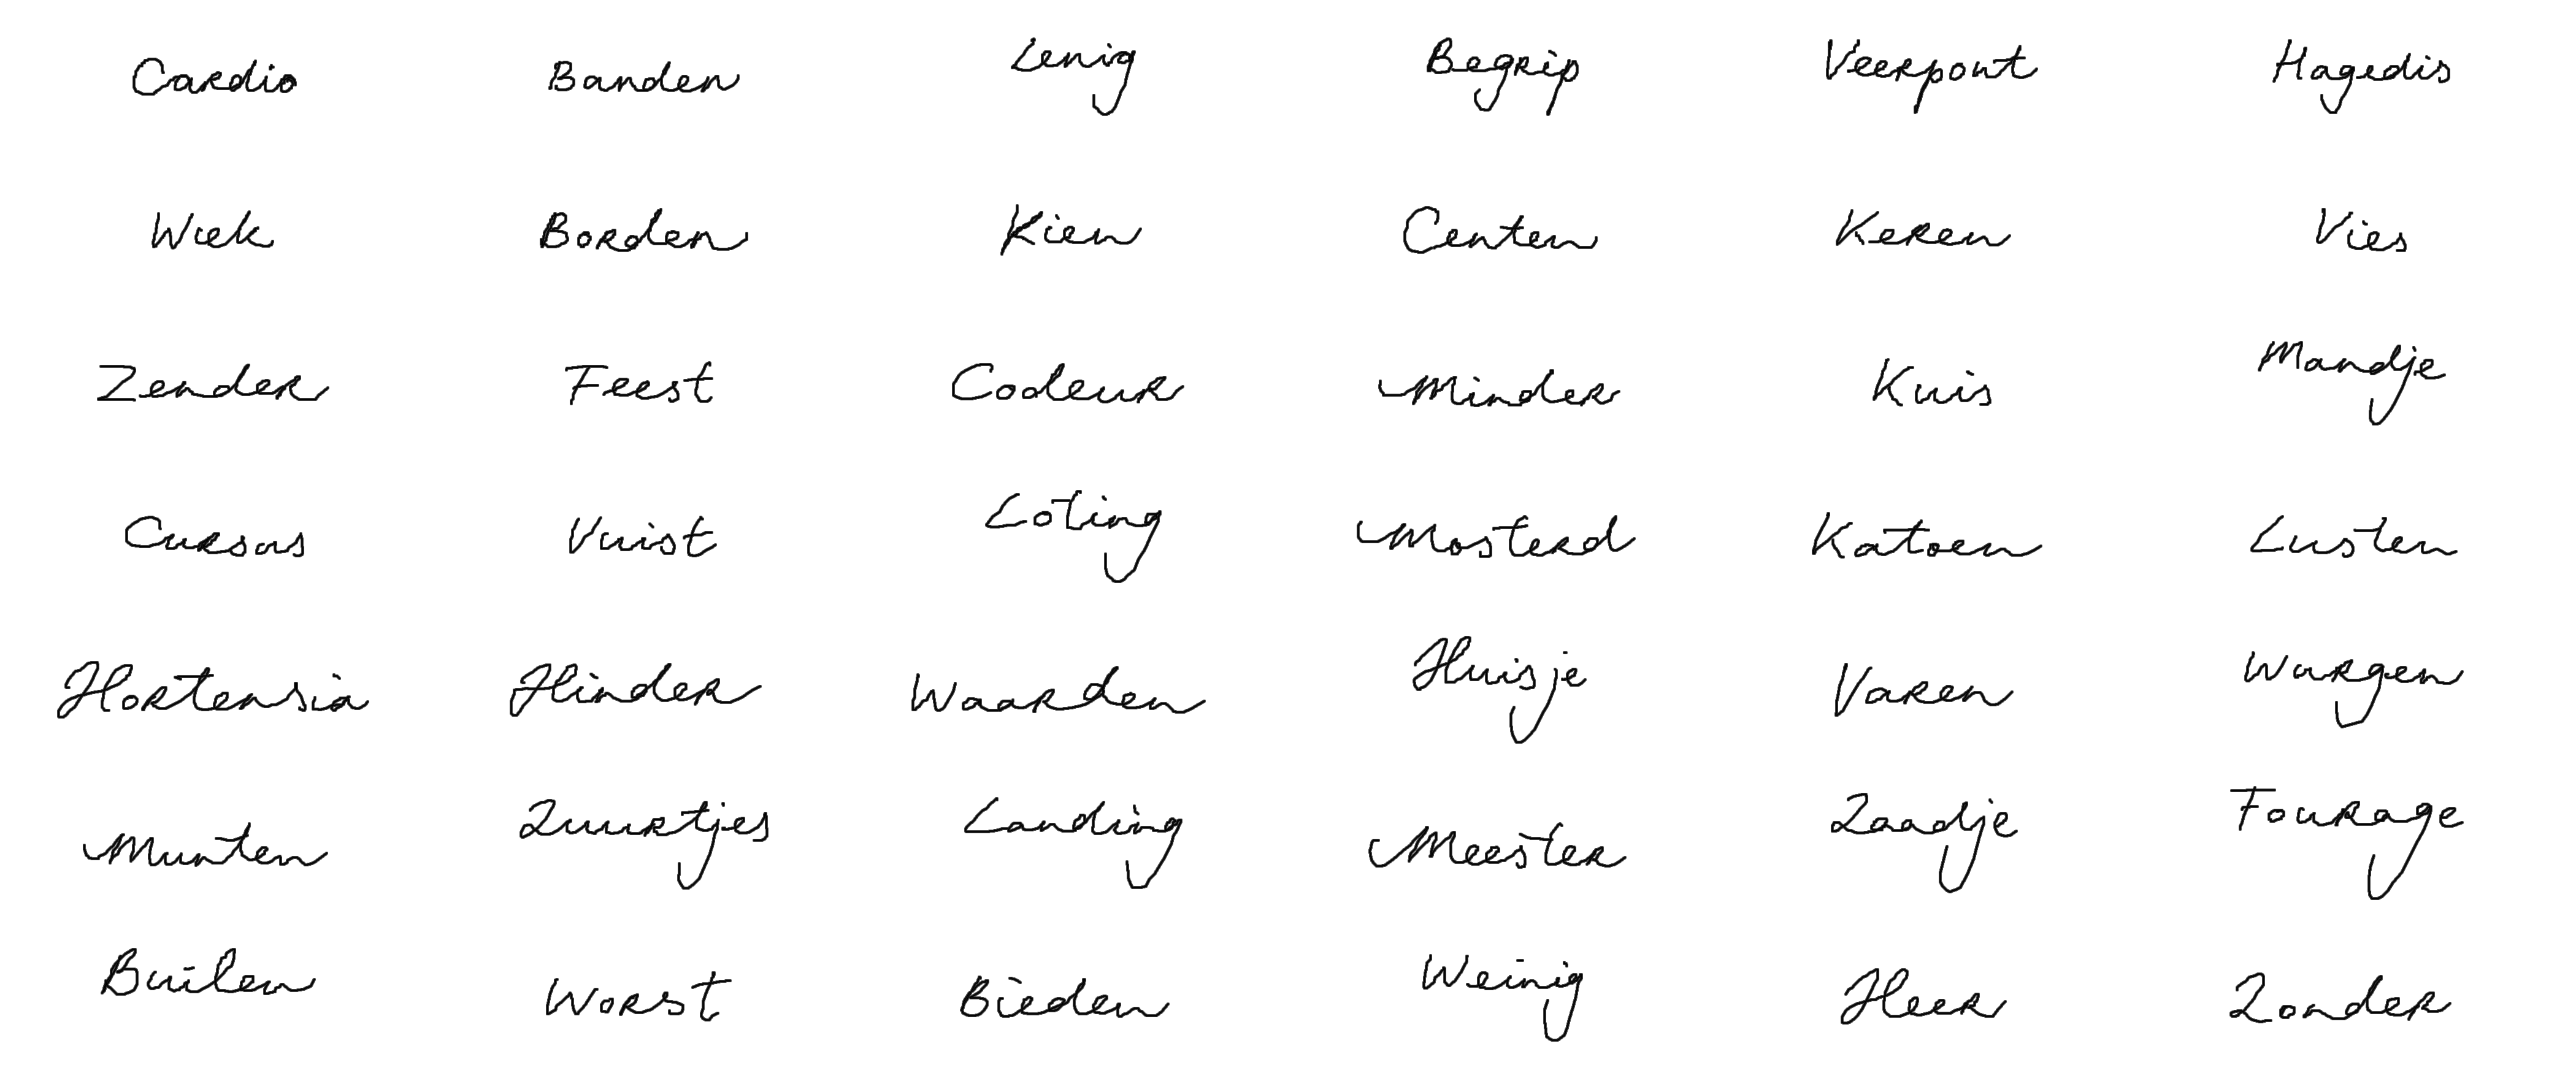 Cardio Banden Lenig Begrip Veerpont Hagedis
Wiek Borden Kien Centen Keren Vies
Zender Feest Codeur Minder Kuis Mandje
Cursus Vuist Loting Mosterd Katoen Lusten
Hortensia Hinder Waarden Huisje Varen Wurgen
Munten Zuurtjes Landing Meester Zaadje Fourage
Builen Worst Bieden Weinig Heer Zonder